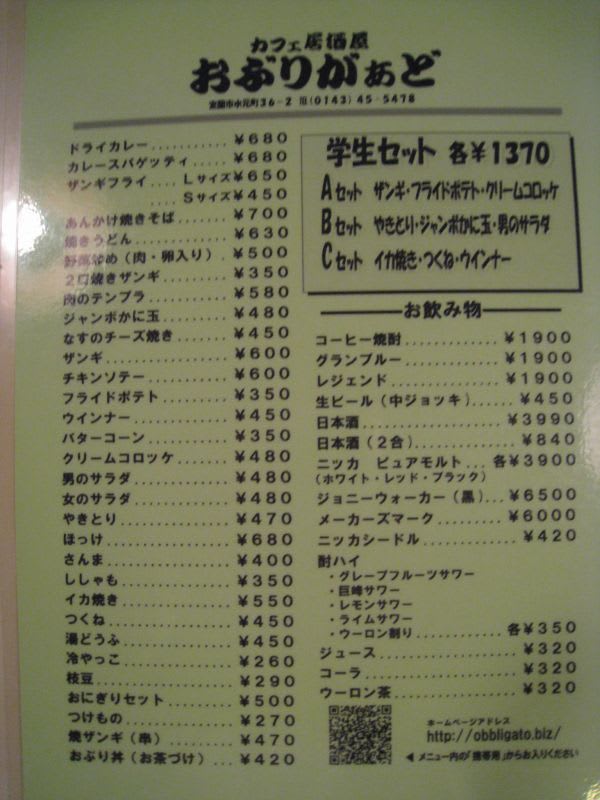 カフェ居酒屋
おぶりがぁど
室蘭市水元町36-2 ☎(0143)45-5478
ドライカレー...........¥680
カレースパゲッティ.....¥680
ザンギフライ....Lサイズ¥650
....Sサイズ¥450
あんかけ焼きそば.......¥700
焼きうどん.............¥630
野菜炒め(肉・卵入り).¥500
2口焼きザンギ.........¥350
肉のテンプラ...........¥580
ジャンボかに玉.........¥480
なすのチーズ焼き.......¥450
ザンギ.................¥600
チキンソテー...........¥600
フライドポテト.........¥350
ウインナー.............¥450
バターコーン...........¥350
クリームコロッケ.......¥480
男のサラダ.............¥480
女のサラダ.............¥480
やきとり...............¥470
ほっけ.................¥680
さんま.................¥400
ししゃも...............¥350
イカ焼き...............¥550
つくね.................¥450
湯どうふ...............¥450
冷やっこ...............¥260
枝豆...................¥290
おにぎりセット.........¥500
つけもの...............¥270
焼ザンギ(串).........¥470
おぶり丼(お茶づけ)...¥420
学生セット 各¥1370
Aセット ザンギ・フライドポテト・クリームコロッケ
Bセット やきとり・ジャンボかに玉・男のサラダ
Cセット イカ焼き・つくね・ウインナー
お飲み物
コーヒー焼酎.............¥1900
グランブルー.............¥1900
レジェンド...............¥1900
生ビール(中ジョッキ)......¥450
日本酒...................¥3990
日本酒(2合).............¥840
ニッカ ピュアモルト...各¥3900
(ホワイト・レッド・ブラック)
ジョニーウォーカー(黒)...¥6500
メーカーズマーク.........¥6000
ニッカシードル............¥420
酎ハイ
・グレープフルーツサワー
・巨峰サワー
・レモンサワー
・ライムサワー
・ウーロン割り............各¥350
ジュース..................¥320
コーラ....................¥320
ウーロン茶................¥320
ホームページアドレス
http://obbligato.biz/
◀ メニュー内の「携帯用」からお入りください